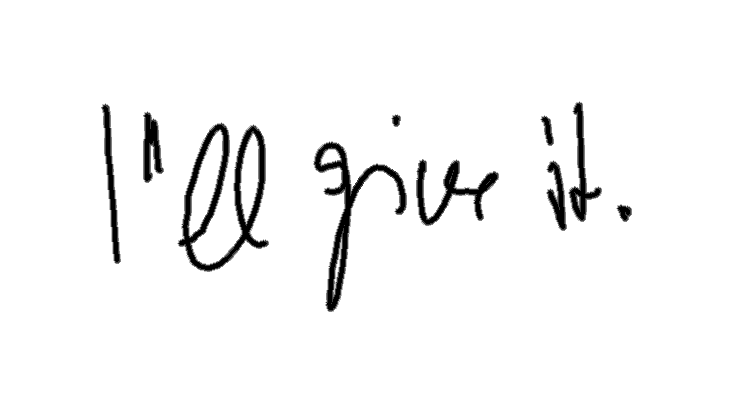 I'll give it.